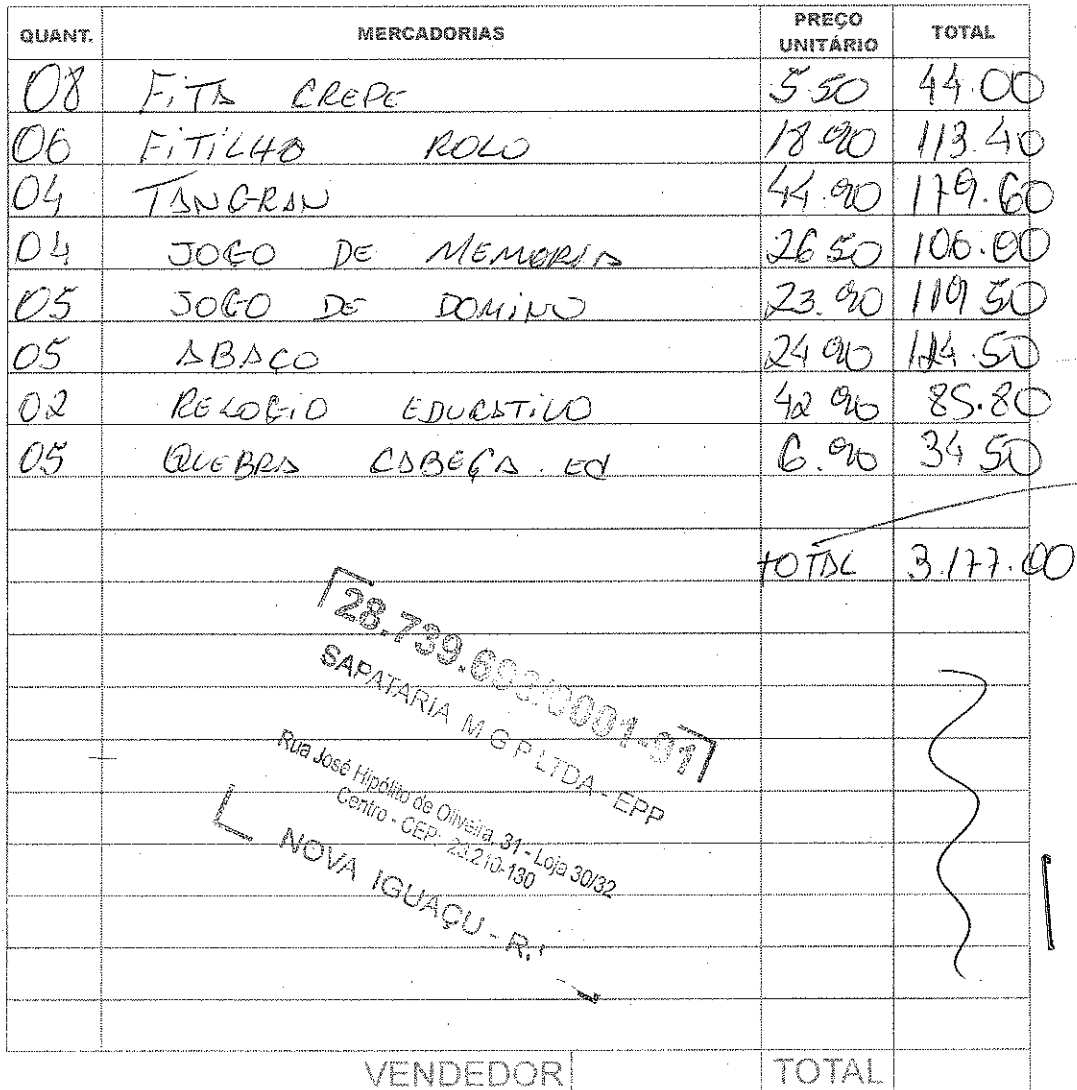 QUANT. MERCADORIAS PREÇO UNITÁRIO TOTAL
08 FITA CREPE 5.50 44.00
06 FITILHO ROLO 18.90 113.40
04 TANGRAN 44.90 179.60
04 JOGO DE MEMORIA 26.50 106.00
05 JOGO DE DOMINO 23.90 119.50
05 ABACO 24.90 124.50
02 RELOGIO EDUCATIVO 42.90 85.80
05 QUEBRA CABEÇA. ED 6.90 34.50
TOTAL 3.177.00
28.739.693/0001-91
SAPATARIA M G P LTDA - EPP
Rua José Hipólito de Oliveira, 31 - Loja 30/32
Centro - CEP: 210-130
NOVA IGUAÇU - R.
VENDEDOR TOTAL